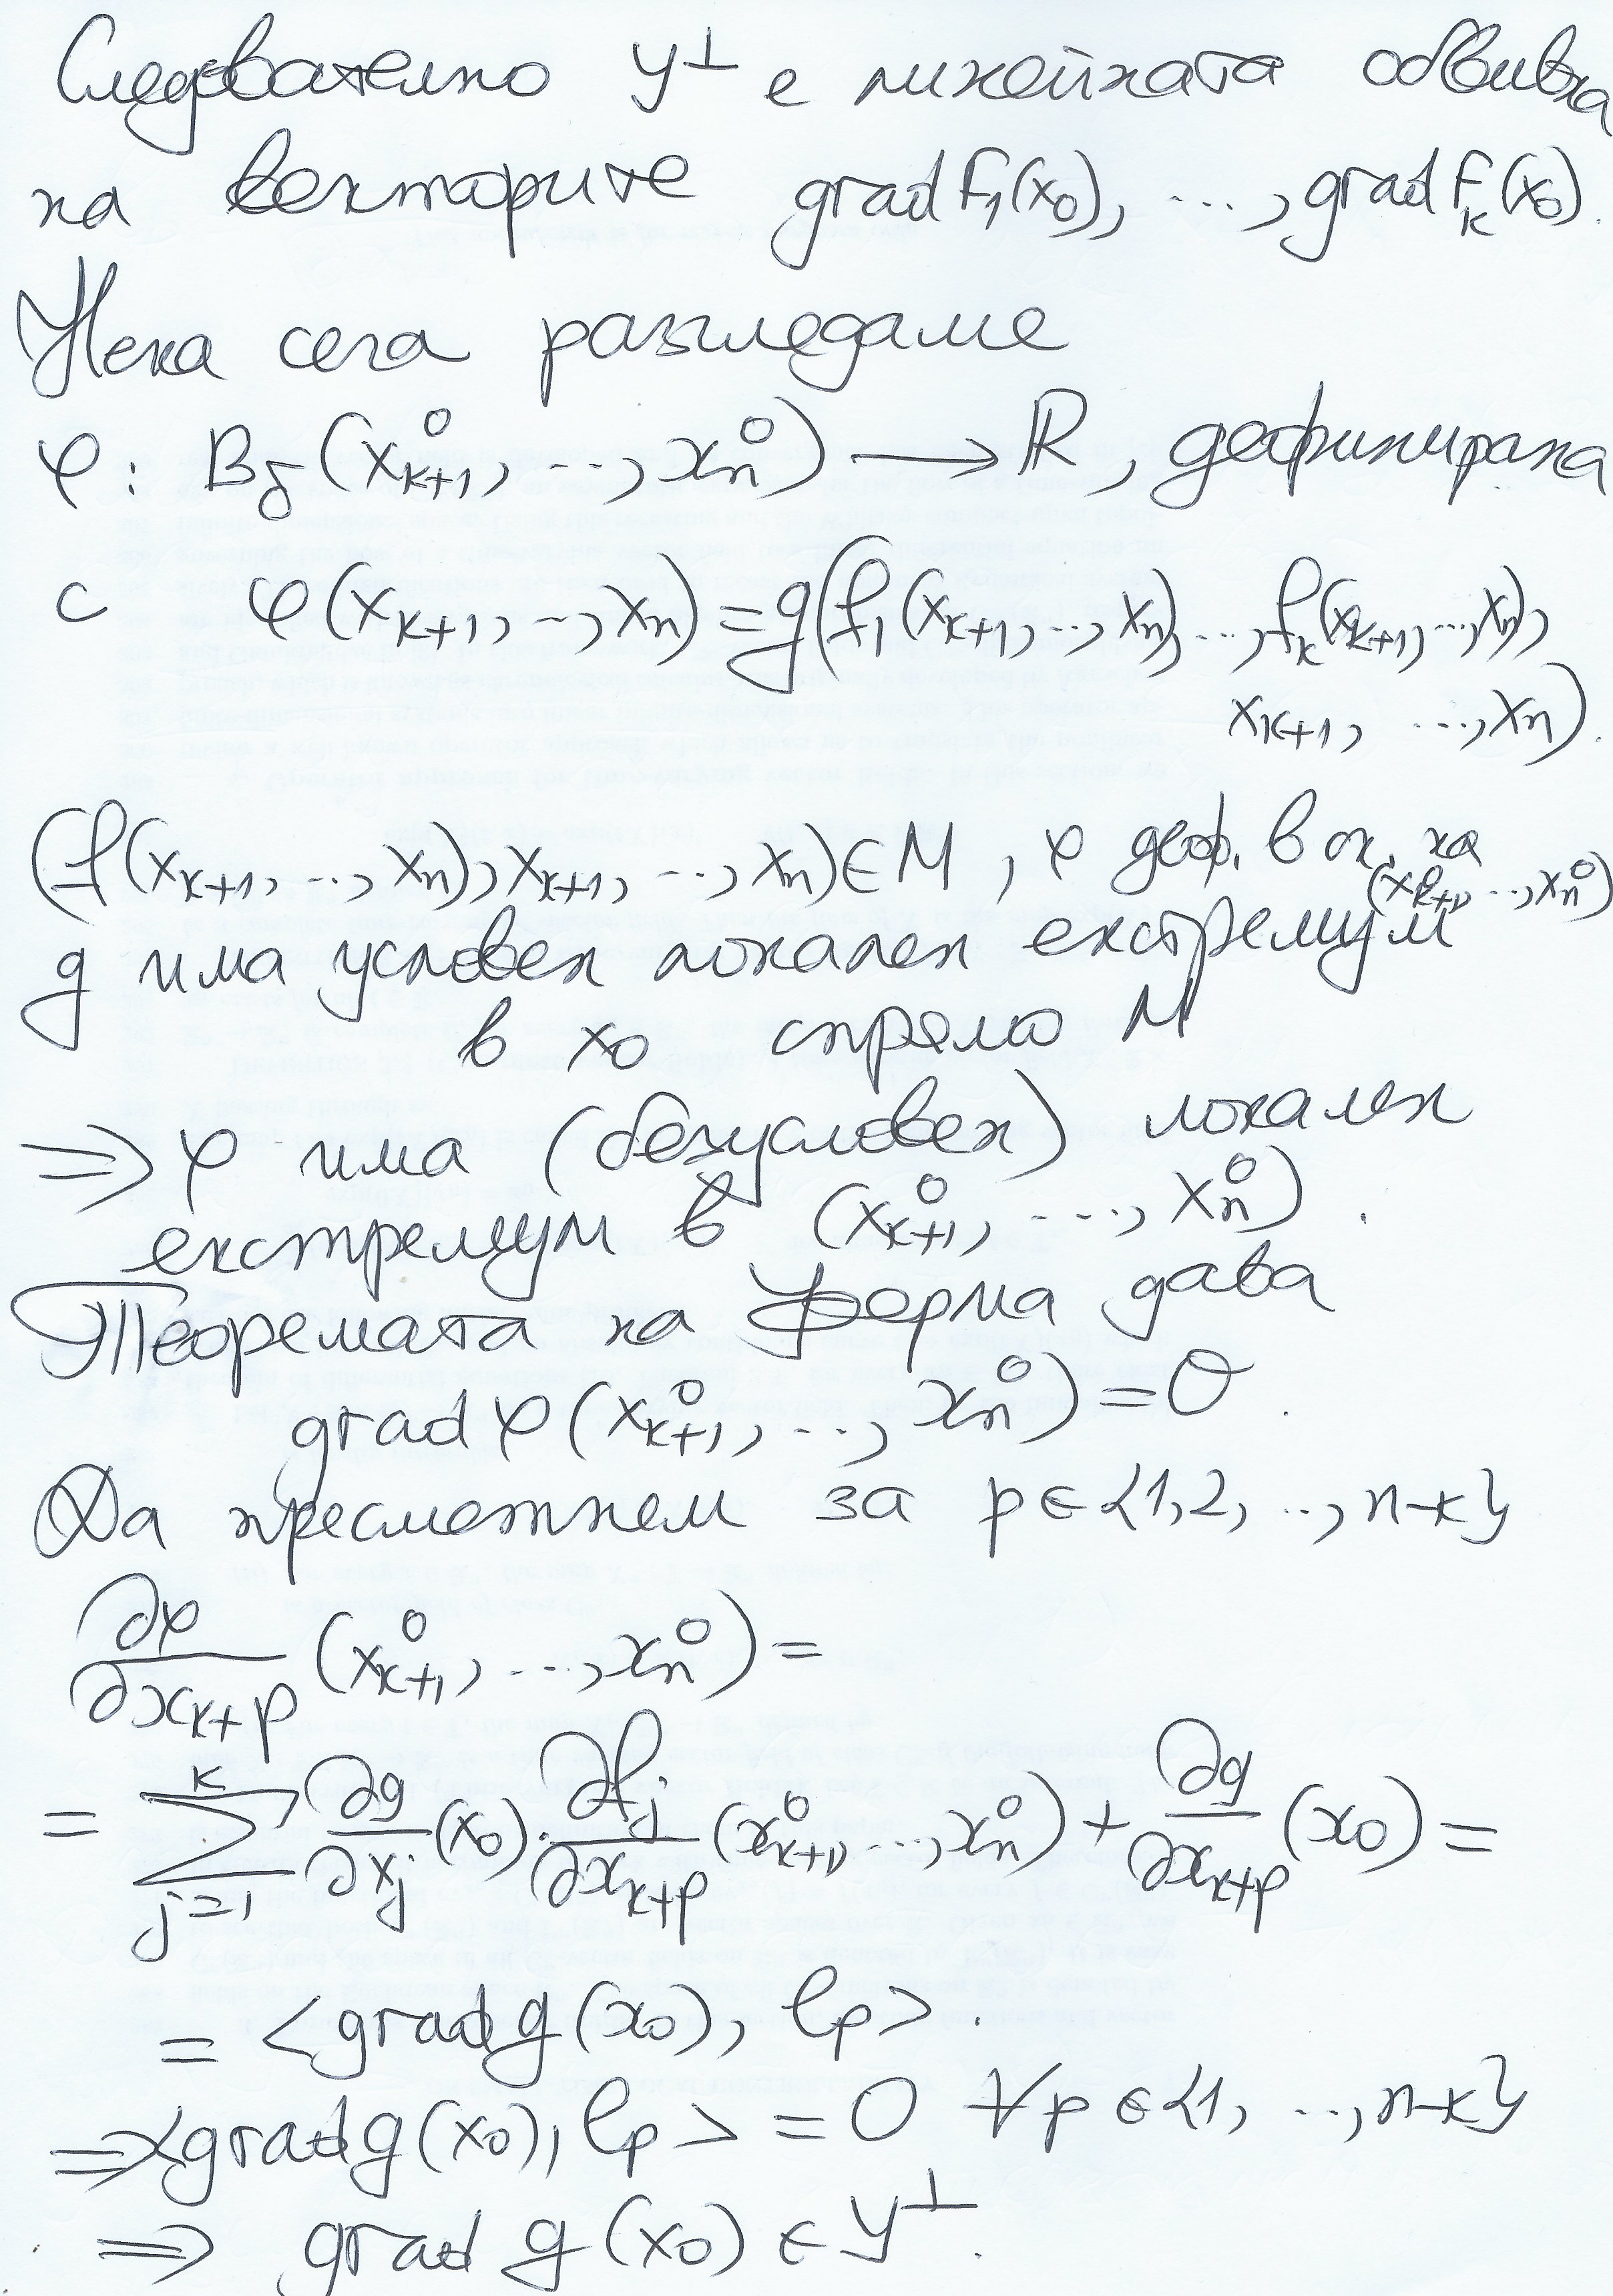 Следователно Y⊥ е линейната обвивка
на векторите grad F₁(x₀), ..., grad Fₖ(x₀).
Нека сега разгледаме
φ: B_δ(x⁰ₖ₊₁, ..., x⁰ₙ) → ℝ, дефинирана
с φ(xₖ₊₁, .., xₙ) = g(f₁(xₖ₊₁, .., xₙ), ..., fₖ(xₖ₊₁, ..., xₙ),
xₖ₊₁, ..., xₙ).
(f(xₖ₊₁, ..., xₙ), xₖ₊₁, ..., xₙ) ∈ M, φ деф. в ок. на
(x⁰ₖ₊₁, ..., x⁰ₙ)
g има условен локален екстремум
в x₀ спрямо M
⇒ φ има (безусловен) локален
екстремум в (x⁰ₖ₊₁, ..., x⁰ₙ).
Теоремата на Ферма дава
grad φ(x⁰ₖ₊₁, ..., x⁰ₙ) = 0.
Да пресметнем за p ∈ {1, 2, .., n-k}
∂φ/∂xₖ₊ₚ (x⁰ₖ₊₁, ..., x⁰ₙ) =
= ∑ⱼ₌₁ᵏ ∂g/∂xⱼ (x₀) · ∂fⱼ/∂xₖ₊ₚ (x⁰ₖ₊₁, ..., x⁰ₙ) + ∂g/∂xₖ₊ₚ (x₀) =
= <grad g(x₀), lₚ>.
⇒ <grad g(x₀), lₚ> = 0 ∀p ∈ {1, .., n-k}
⇒ grad g(x₀) ∈ Y⊥.